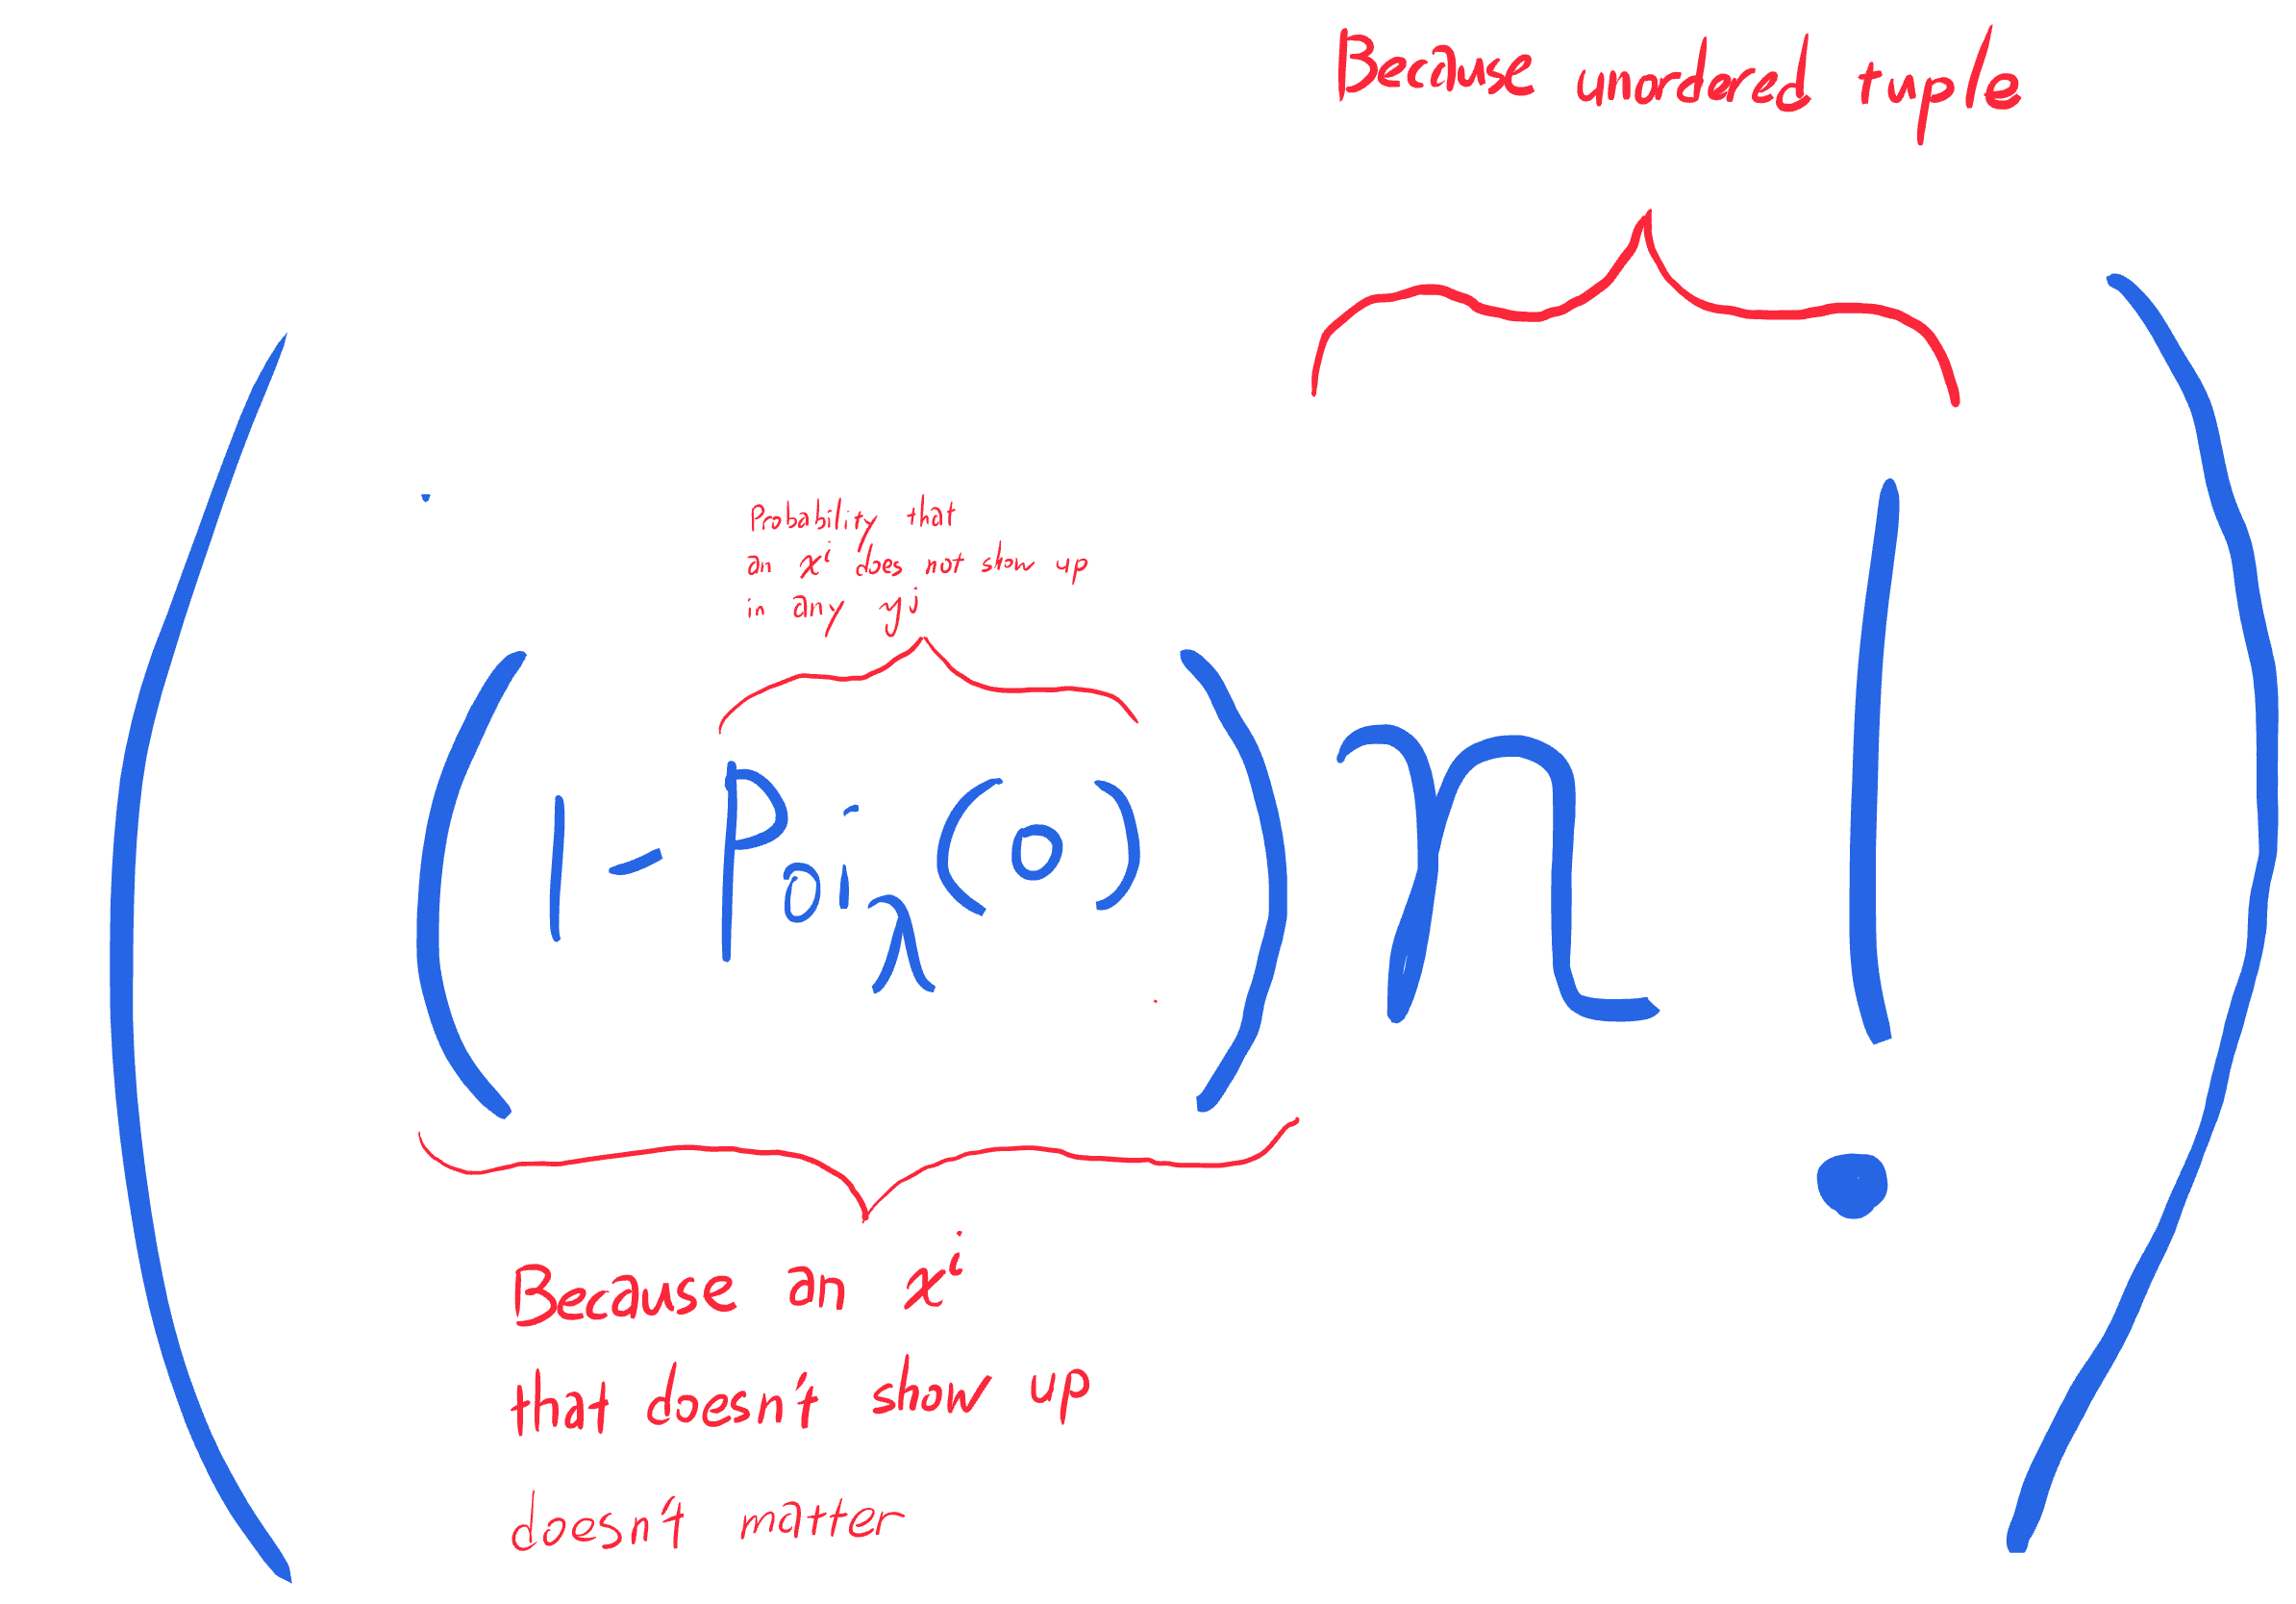 Because unordered tuple
Probability that
an xⁱ does not show up
in any yʲ
((1-Poi_λ(0))n!)
Because an xⁱ
that doesn't show up
doesn't matter